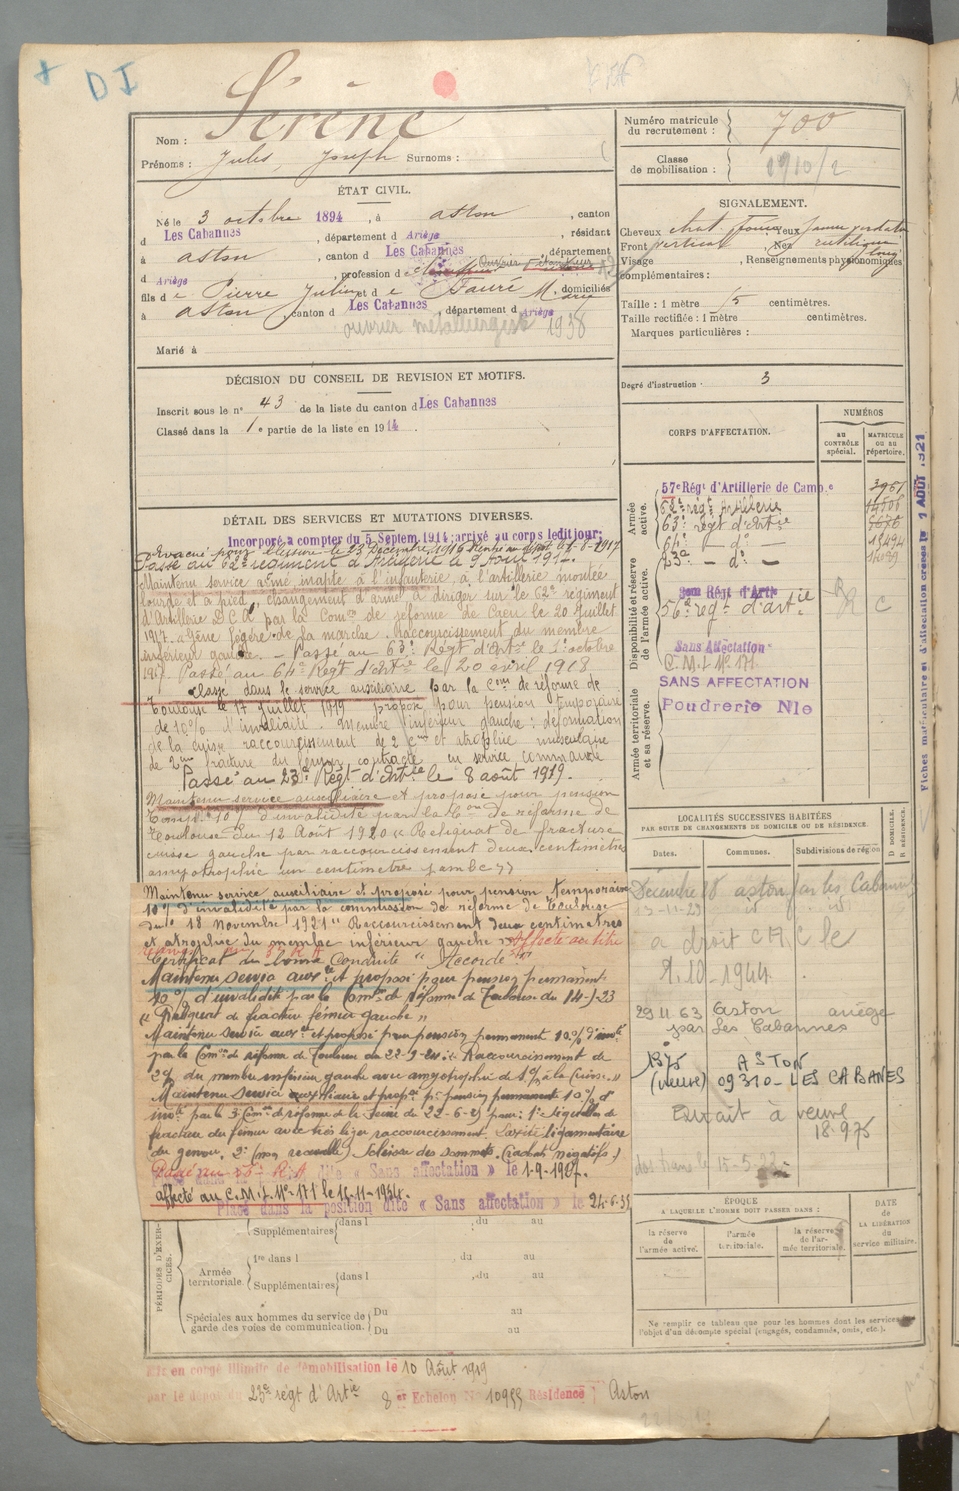 DI
Nom : Serène
Prénoms : Jules, Joseph Surnoms :
Numéro matricule du recrutement : 700
Classe de mobilisation : 1910/2
ÉTAT CIVIL.
Né le 3 octobre 1894, à Aston, canton
d Les Cabannes, département d Ariège, résidant
à Aston, canton d Les Cabannes, département
d Ariège, profession de
fils de Pierre Julien et de Fauré Marie domiciliés
à Aston, canton d Les Cabannes, département d Ariège
ouvrier métallurgiste 1938
Marié à
SIGNALEMENT.
Cheveux chat. foncé yeux
Front vertical, Nez rectiligne
Visage long, Renseignements physionomiques
complémentaires :
Taille : 1 mètre centimètres.
Taille rectifiée : 1 mètre centimètres.
Marques particulières :
Degré d'instruction : 3
DÉCISION DU CONSEIL DE REVISION ET MOTIFS.
Inscrit sous le n° 43 de la liste du canton d Les Cabannes
Classé dans la 1e partie de la liste en 1914.
CORPS D'AFFECTATION.
NUMÉROS
au CONTRÔLE spécial.
MATRICULE ou au répertoire.
Armée active.
57e Régt d'Artillerie de Camp.e
62e régt Artillerie
63e régt d'Artie
64e — do —
23e — do —
Disponibilité et réserve de l'armée active.
56e régt d'artie
Sans Affectation
C.M.I. N° 171
Armée territoriale et sa réserve.
SANS AFFECTATION
Poudrerie Nle
Fiches matricule et d'affectation créées le 1 AOUT 1921
DÉTAIL DES SERVICES ET MUTATIONS DIVERSES.
Incorporé à compter du 5 Septem. 1914; arrivé au corps ledit jour;
Evacué pour blessure le 23 Décembre 1916 Rentré au dépôt le
Passé au 62e régiment d'Artillerie le 9 Août 191
Maintenu service armé, inapte à l'infanterie, à l'artillerie montée
lourde et à pied, changement d'arme à diriger sur le 62e régiment
d'Artillerie D.C.A. par la Comon de réforme de Caen le 20 Juillet
1917. "Gêne légère de la marche. Raccourcissement du membre
inférieur gauche. — Passé au 63e Régt d'Artie le 1er octobre
1917. Passé au 64e Régt d'Artie le 20 avril 1918
Classé dans le service auxiliaire par la Con de réforme de
Toulouse le 17 Juillet 1919 proposé pour pension temporaire
de 10% d'invalidité. Membre inférieur gauche : déformation
de la cuisse raccourcissement de 2 cm et atrophie musculaire
de 2 cm fracture du fémur contracté en service commandé
Passé au 23e Régt d'Artie le 8 août 1919.
Maintenu service auxiliaire et proposé pour pension
temp. 10% d'invalidité par la Con de réforme de
Toulouse du 12 Août 1920 "Reliquat de fracture
cuisse gauche par raccourcissement deux centimètres
amyotrophie un centimètre jambe"
Maintenu service auxiliaire et proposé pour pension temporaire
10% d'invalidité par la commission de réforme de Toulouse
du 18 Novembre 1921 "Raccourcissement deux centimètres
et atrophie du membre inférieur gauche" Affecté au titre
Certificat de bonne Conduite "Accordé"
Maintenu service auxre et proposé pour pension permanente
10% d'invalidité par la Comon de réforme de Toulouse du 14-5-23
"Reliquat de fracture fémur gauche"
Maintenu service auxre et proposé pour pension permanente 10% d'invté
par la Comon de réforme de Toulouse du 22-9-24 : Raccourcissement de
2 cm du membre inférieur gauche avec amyotrophie de 1 cm à la Cuisse."
Maintenu service auxiliaire et propé pr pension permanente 10% d'
invté par la 3e Comon de réforme de la Seine du 22-6-25 pour : 1° Séquelles de
fracture du fémur avec très léger raccourcissement. Laxité ligamentaire
du genou. 2° (non recueilli) Sclérose des sommets. (crachats négatifs)
dite « Sans affectation » le 1-9-1927.
affecté au C.M.I. N° 171 le 15-11-1934.
Placé dans la position dite « Sans affectation » le 24-6-35
LOCALITÉS SUCCESSIVES HABITÉES
PAR SUITE DE CHANGEMENTS DE DOMICILE OU DE RÉSIDENCE.
Dates. Communes. Subdivisions de région D DOMICILE. R RÉSIDENCE.
Décembre 18 aston par les Cabannes
13-11-23 id id
a droit C.M.C le
9.10-1944.
29.11.63 Aston ariège
par Les Cabannes
1975 ASTON
(veuve) 09310 - LES CABANES
Extrait à veuve
18.9.75
ÉPOQUE
A LAQUELLE L'HOMME DOIT PASSER DANS :
la réserve de l'armée active.
l'armée territoriale.
la réserve de l'armée territoriale.
DATE de LA LIBÉRATION du service militaire.
Ne remplir ce tableau que pour les hommes dont les services
l'objet d'un décompte spécial (engagés, condamnés, omis, etc.).
PÉRIODES D'EXERCICES.
Supplémentaires dans l du au
Armée territoriale.
1re dans l , du au
Supplémentaires dans l , du au
Spéciales aux hommes du service de garde des voies de communication.
Du au
Du au
Mis en congé illimité de démobilisation le 10 Août 1919
par le dépôt du 23e régt d'Artie 8 er Echelon N° 10955 Résidence Aston